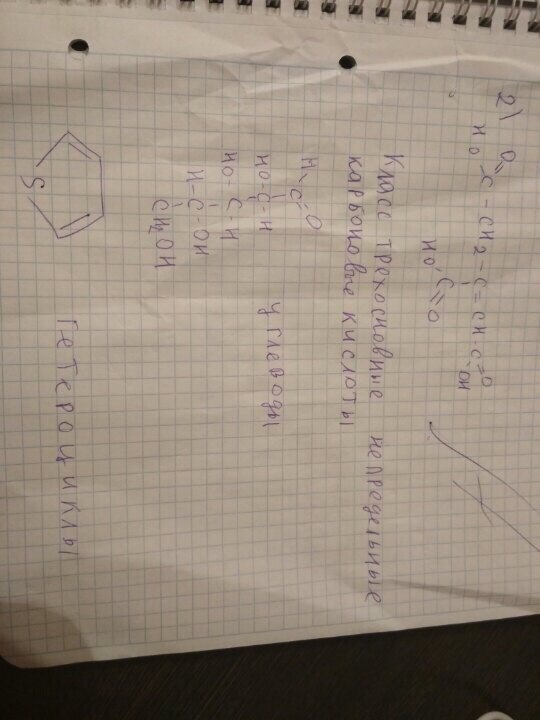 2)
O
HO C - CH2 - C = CH - C = O
OH
HO C = O
Класс трехосновные непредельные
карбоновые кислоты
H - C = O
HO - C - H
HO - C - H
H - C - OH
CH2OH
углеводы
S
Гетероциклы